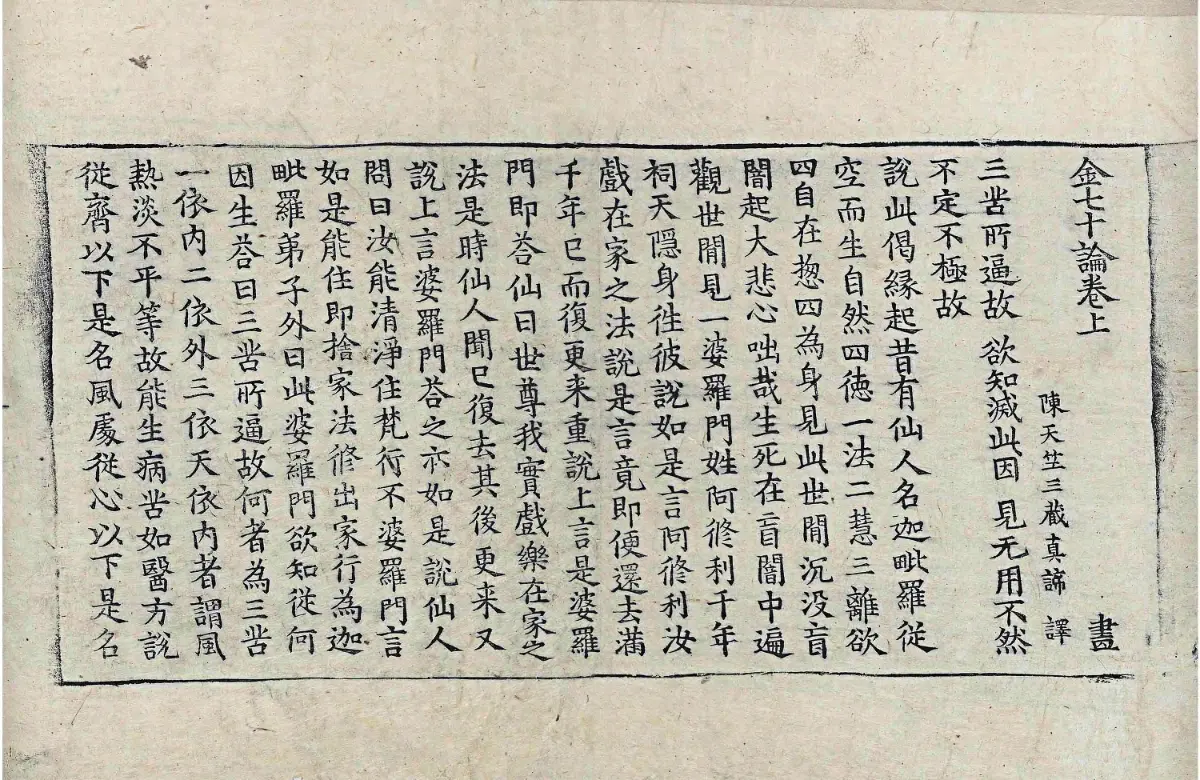 金七十論卷上 畫
陳天竺三藏真諦 譯
三苦所逼故 欲知滅此因 見无用不然
不定不極故
說此偈緣起昔有仙人名迦毗羅從
空而生自然四德一法二慧三離欲
四自在惣四為身見此世間沉没盲
闇起大悲心咄哉生死在盲闇中遍
觀世間見一婆羅門姓阿脩利千年
祠天隱身徃彼說如是言阿脩利汝
戲在家之法說是言竟即便還去滿
千年已而復更来重說上言是婆羅
門即荅仙曰世尊我實戲樂在家之
法是時仙人聞已復去其後更来又
說上言婆羅門荅之亦如是說仙人
問曰汝能清淨住梵行不婆羅門言
如是能住即捨家法脩出家行為迦
毗羅弟子外曰此婆羅門欲知從何
因生荅曰三苦所逼故何者為三苦
一依內二依外三依天依內者謂風
熱淡不平等故能生病苦如醫方說
從齊以下是名風處從心以下是名